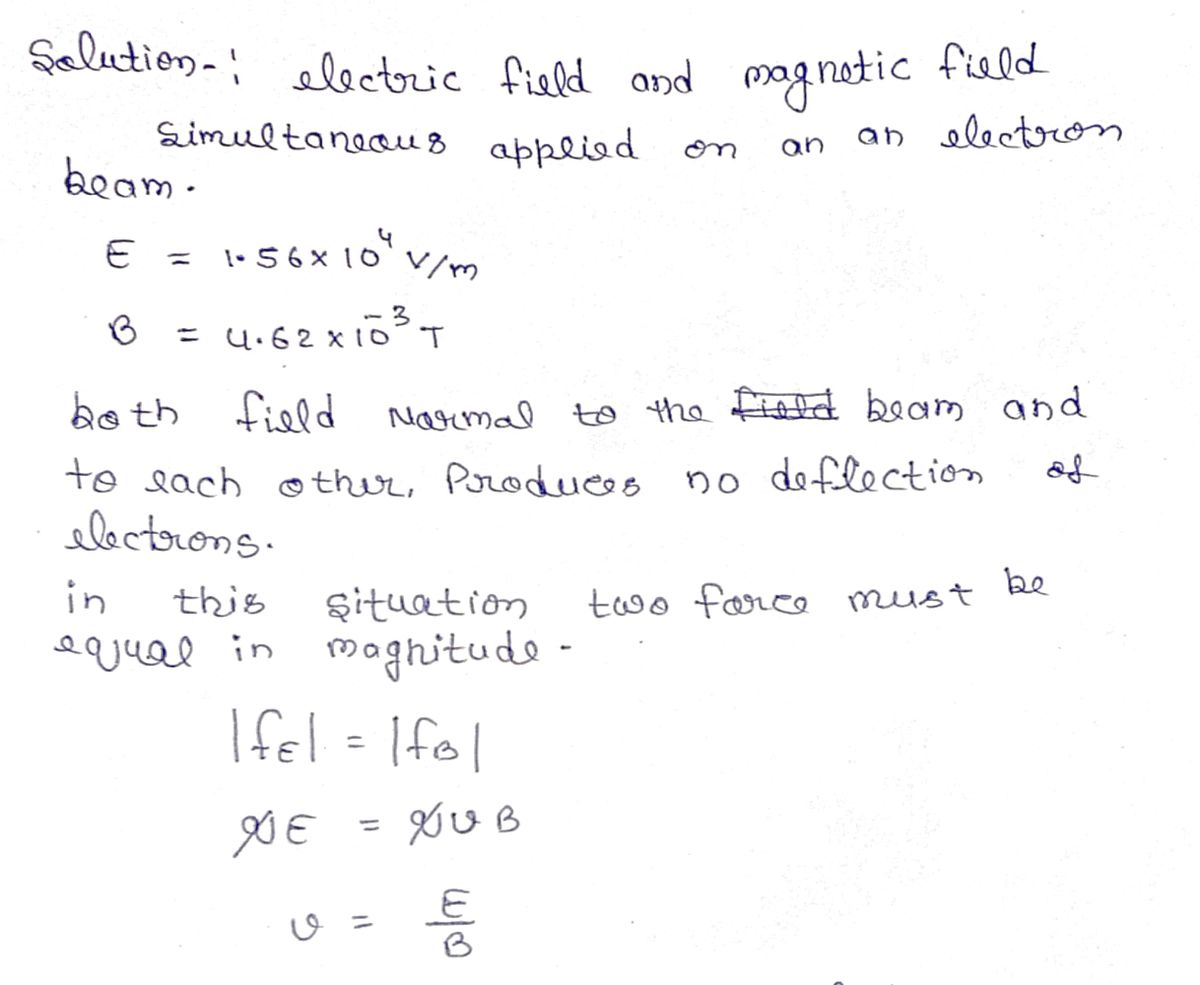 Solution-: electric field and magnetic field
simultaneous applied on an an electron
beam.
E = 1.56 × 10⁴ V/m
B = 4.62 × 10⁻³ T
both field Normal to the field beam and
to each other, Produces no deflection of
electrons.
in this situation two force must be
equal in magnitude -
|fE| = |fB|
qE = qvB
v = E/B